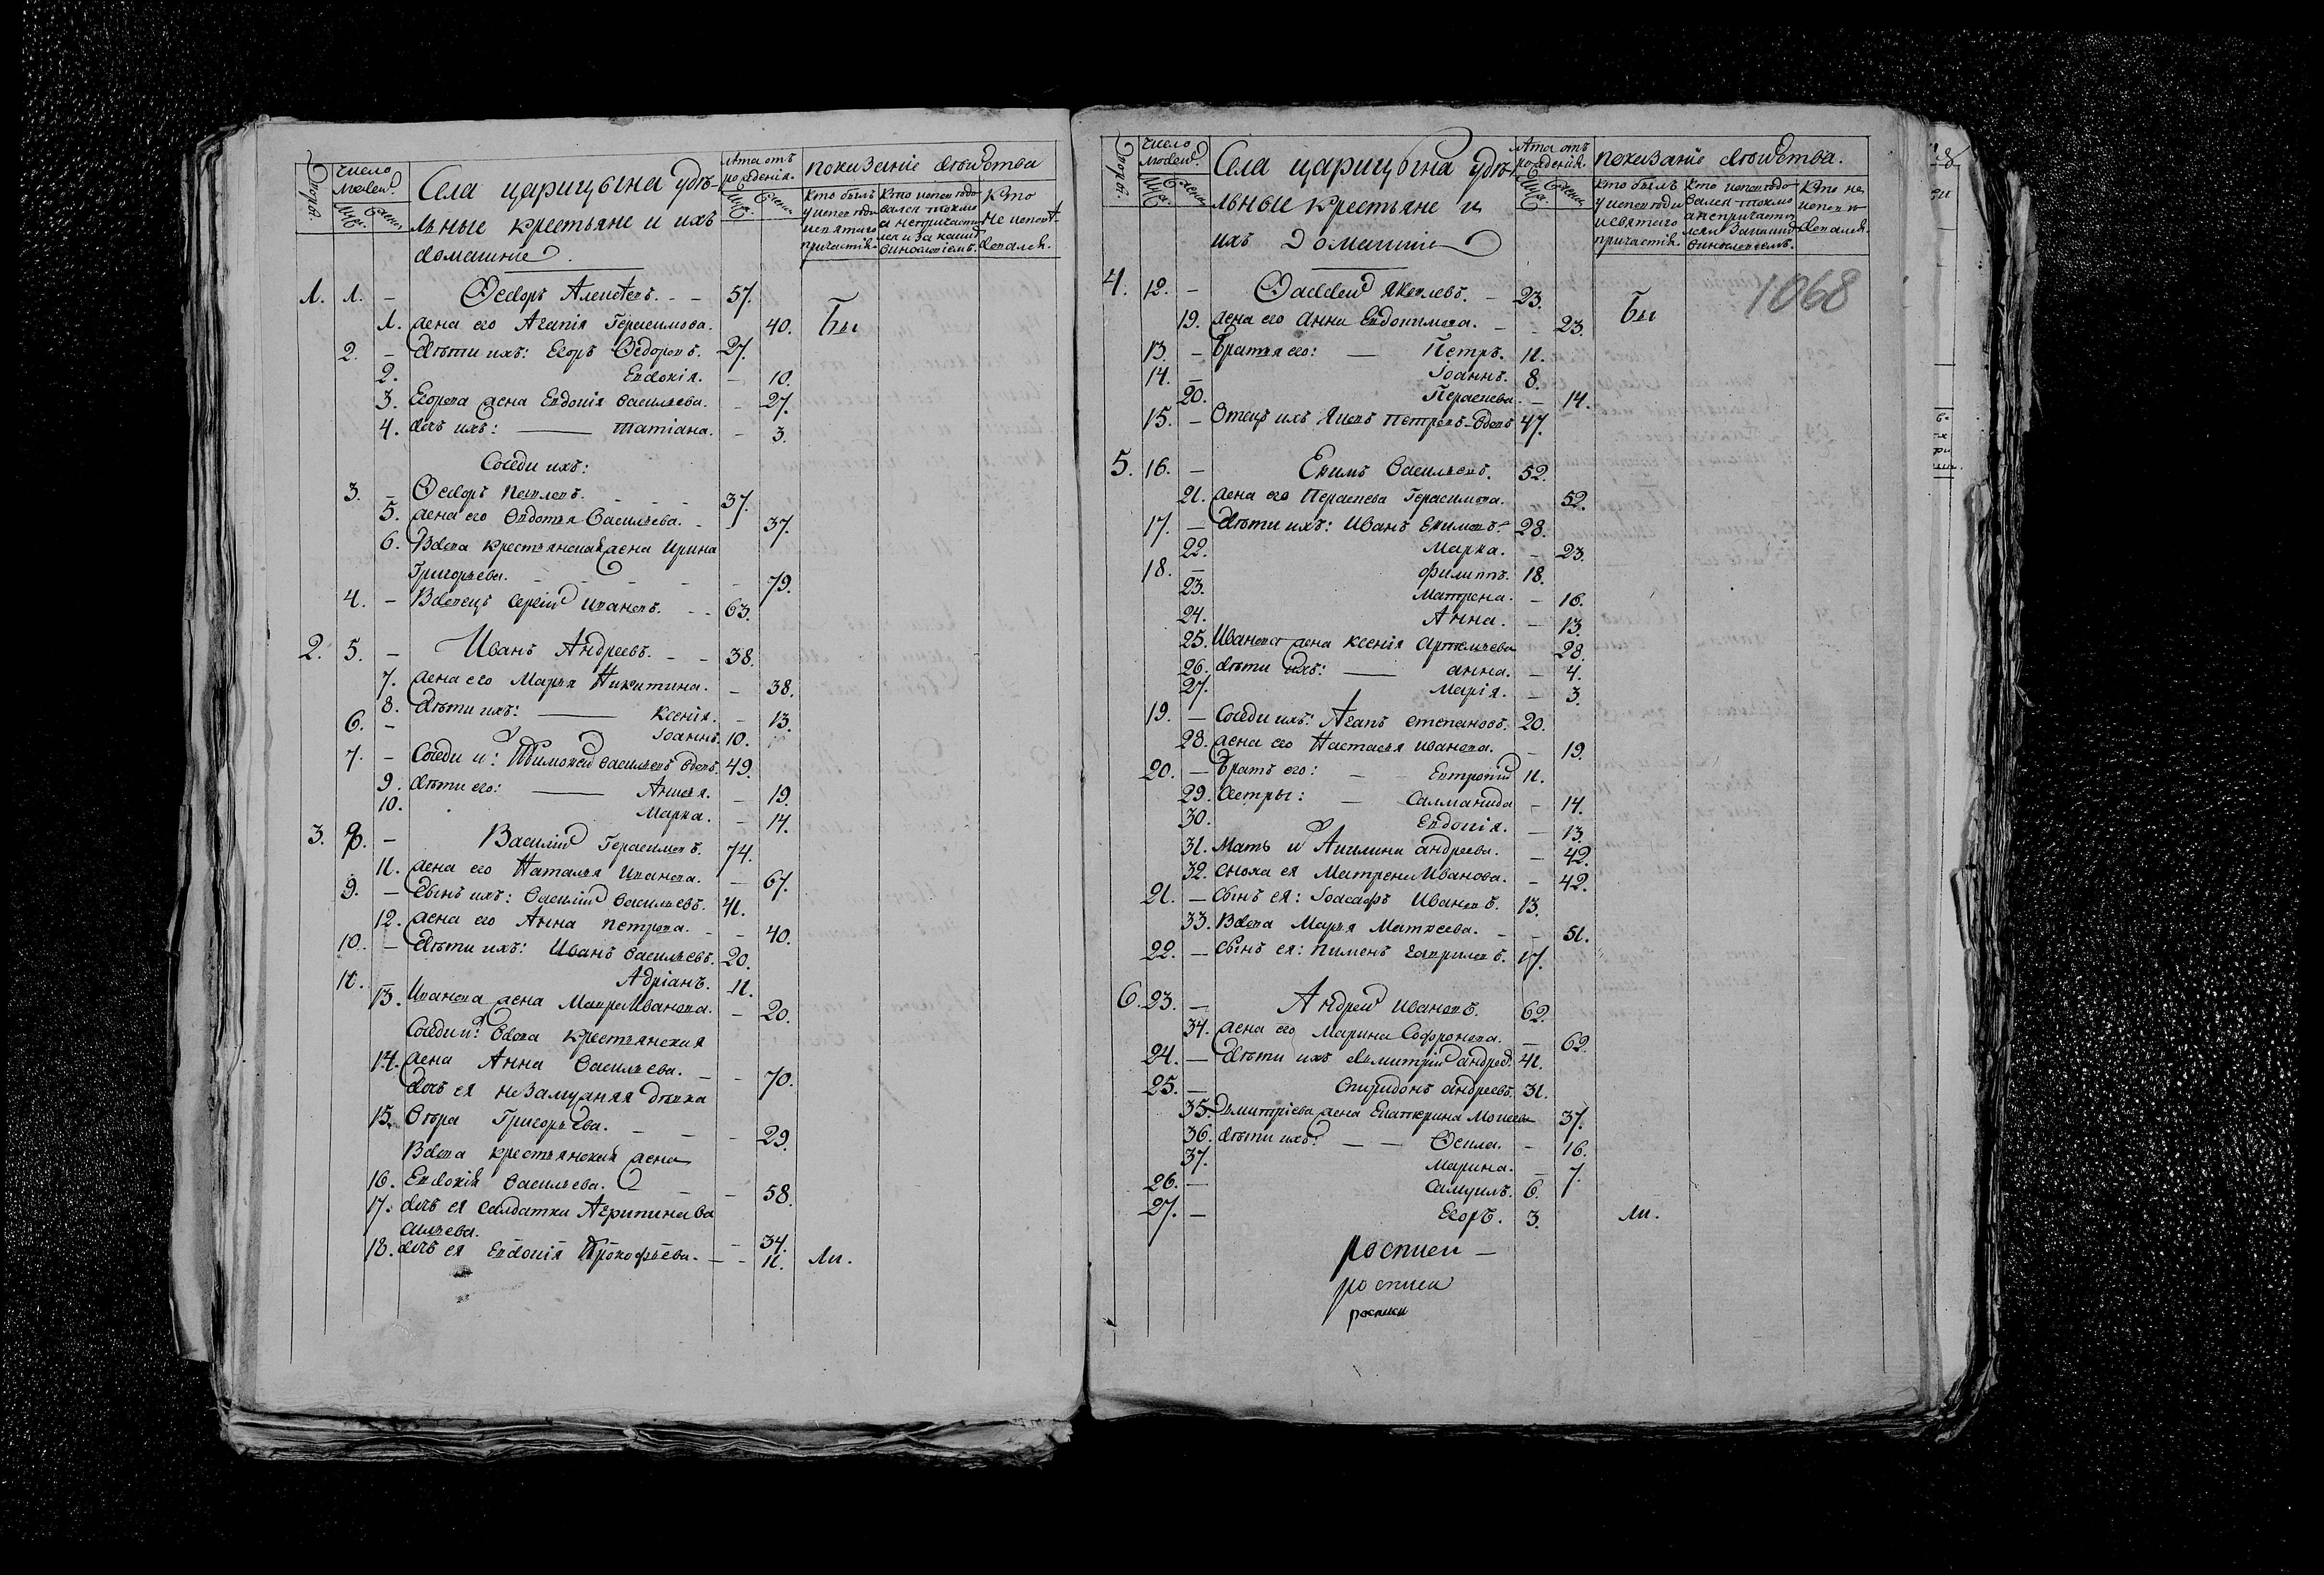 Число
людей.
Села царицына удѣ-
льные крестьяне и ихъ
домашние
лѣта отъ
рождения.
показание действа
кто былъ
у исповеди
и святаго
причастия.
кто испове-
дался токмо
а не причасти-
лся и за каким
винословіемъ.
кто
не испов-
едался.
1. 1. – Ѳедоръ Алексѣевъ. – – 57.
1. жена его Агапія Герасимова. 40. Бы
2. – дѣти ихъ: Егоръ Ѳедоровъ. 27.
2. Евдокія. – 10.
3. Егорова жена Евдокія Васильева. – 27.
4. дочь ихъ: — Татіана. – 3.
Соседи ихъ:
3. – Ѳедоръ 37.
5. жена его Евдотья Васильева. – – 37.
6. Вдова крестьянская жена Ирина
Григорьева. – 79.
4. – Вдовецъ Сергій Ивановъ. – – 63.
2. 5. – Иванъ Андреевъ. – – 38.
7. жена его Марья Никитина. – 38.
8. дѣти ихъ: — Ксенія. – 13.
6. – Іоаннъ. 10.
7. – Соседи и: Тимофей Васильевъ вдовъ. 49.
9. дѣти его: — Анисья. – 19.
10. Марѳа. – 14.
3. 8. – Василій Герасимовъ. 74.
11. жена его Наталья Иванова. – 67.
9. – Сынъ ихъ: Василій Васильевъ. 41.
12. жена его Анна Петрова. – – 40.
10. – дѣти ихъ: Иванъ Васильевъ. 20.
11. – Адріанъ. 11.
13. Иванова жена Мавра Иванова. – 20.
Соседи и: Вдова крестьянская
14. жена Анна Васильева. – – 70.
дочь ея незамужняя дѣвка
15. Григорьева. – – – 29.
Вдова крестьянская жена
16. Евдокія Васильева. – – 58.
17. дочь ея солдатка Агрипина Ва
сильева. – 34.
18. дочь ея Евдокія Прокофьева. – – 11. ли.
Число
людей.
Села царицына удѣ-
льные крестьяне и
ихъ домашние
лѣта отъ
рождения.
показание действа.
кто былъ
у исповеди
и святаго
причастия.
кто испове-
дался токмо
а не причасти-
лся и за каким
винословіемъ.
кто не
испов-
едался.
1068
4. 12. – Ѳаддей Яковлевъ. – 23. Бы
19. жена его Анна Евдокимова. – – 23.
13. – Братья его: — Петръ. 11.
14. – Іоаннъ. 8.
20. Параскева. – 14.
15. – Отецъ ихъ Яковъ Петровъ вдовъ 47.
5. 16. – Екимъ Васильевъ. 52.
21. жена его Параскева Герасимова. – 52.
17. – дѣти ихъ: Иванъ Екимовъ. – 28.
22. Марѳа. – 23.
18. – Филиппъ. 18.
23. Матрена. – 16.
24. Анна. – 13.
25. Иванова жена Ксенія 28.
26. дѣти ихъ: — Анна. – 4.
27. Марія. – 3.
19. – Соседи ихъ: Агапъ Степановъ. 20.
28. жена его Настасья Иванова. – 19.
20. – Братъ его: – Евтропій 11.
29. Сестры: – Саламанида – 14.
30. Евдокія. – 13.
31. Мать и Акилина Андреева. – 42.
32. сноха ея Матрена Иванова. – 42.
21. – Сынъ ея: Іоасафъ Ивановъ. 13.
33. Вдова Марья Матвеева. – – 51.
22. – Сынъ ея: Пименъ Гавриловъ. 17.
6. 23. – Андрей Ивановъ. 62.
34. жена его Марина Софронова. – 62.
24. – дѣти ихъ Димитрій Андреев. 41.
25. – Спиридонъ Андреевъ. 31.
35. Димитріева жена Екатерина Моисеева 37.
36. дѣти ихъ: – – Ѳекла. – 16.
37. Марина. – 7.
26. – Самуилъ. 6.
27. – Егоръ. 3. ли.
росписи –
росписи
росписи